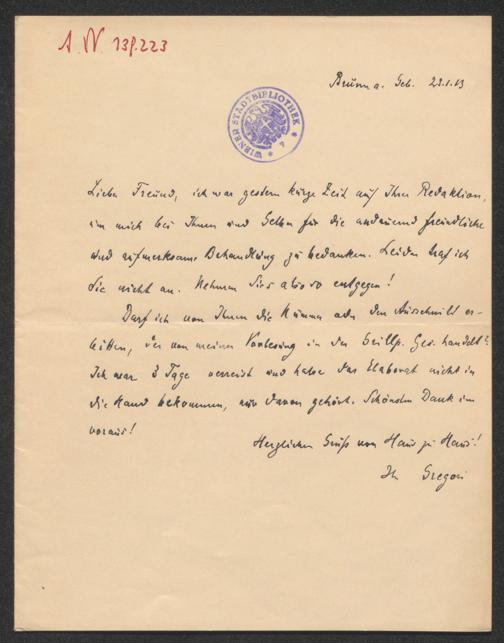 A. N. 139.223
Brünn a. Geb. 23.1.13
WIENER STADTBIBLIOTHEK
Lieber Freund, ich war gestern kurze Zeit auf Ihrer Redaktion,
um mich bei Ihnen und für die andauernd freundliche
und aufmerksame Behandlung zu bedanken. Leider traf ich
Sie nicht an. Nehmen Sie's also so entgegen!
Darf ich von Ihnen die Nummer oder den Ausschnitt er-
bitten, der von meiner Vorlesung in der Grillp. Ges. handelt?
Ich war 3 Tage verreist und habe das Elaborat nicht in
die Hand bekommen, nur davon gehört. Schönsten Dank im
voraus!
Herzlichen Gruß von Haus zu Haus!
Ihr Gregori